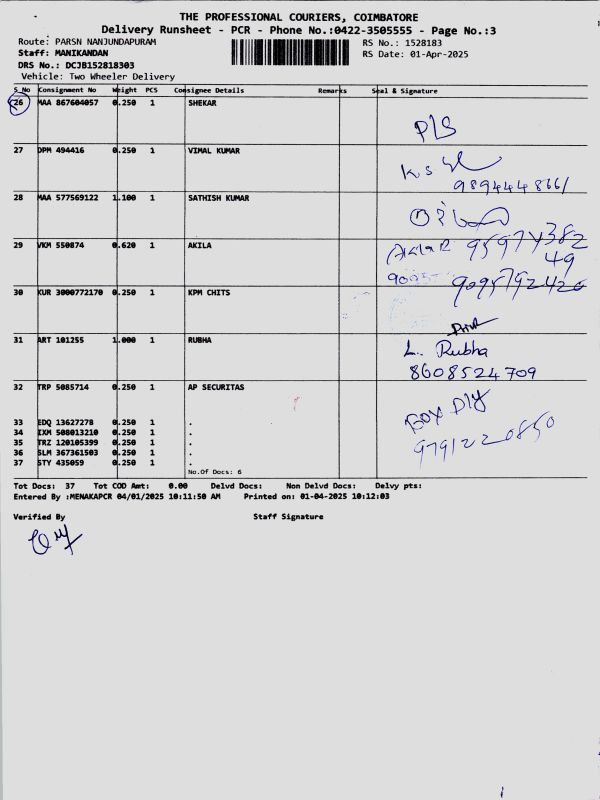 THE PROFESSIONAL COURIERS, COIMBATORE
Delivery Runsheet - PCR - Phone No.:0422-3505555 - Page No.:3
Route: PARSN NANJUNDAPURAM RS No.: 1528183
Staff: MANIKANDAN RS Date: 01-Apr-2025
DRS No.: DCJB152818303
Vehicle: Two Wheeler Delivery
S_No Consignment No Weight PCS Consignee Details Remarks Seal & Signature
26 MAA 867604057 0.250 1 SHEKAR
27 DPM 494416 0.250 1 VIMAL KUMAR
28 MAA 577569122 1.100 1 SATHISH KUMAR
29 VKM 550874 0.620 1 AKILA
30 KUR 3000772170 0.250 1 KPM CHITS
9095792420
31 ART 101255 1.000 1 RUBHA
L. Rubha
8608524709
32 TRP 5085714 0.250 1 AP SECURITAS
Box
9791220850
33 EDQ 13627278 0.250 1 .
34 IXM 508013210 0.250 1 .
35 TRZ 120105399 0.250 1 .
36 SLM 367361503 0.250 1 .
37 STY 435059 0.250 1 .
No.Of Docs: 6
Tot Docs: 37 Tot COD Amt: 0.00 Delvd Docs: Non Delvd Docs: Delvy pts:
Entered By :MENAKAPCR 04/01/2025 10:11:50 AM Printed on: 01-04-2025 10:12:03
Verified By Staff Signature